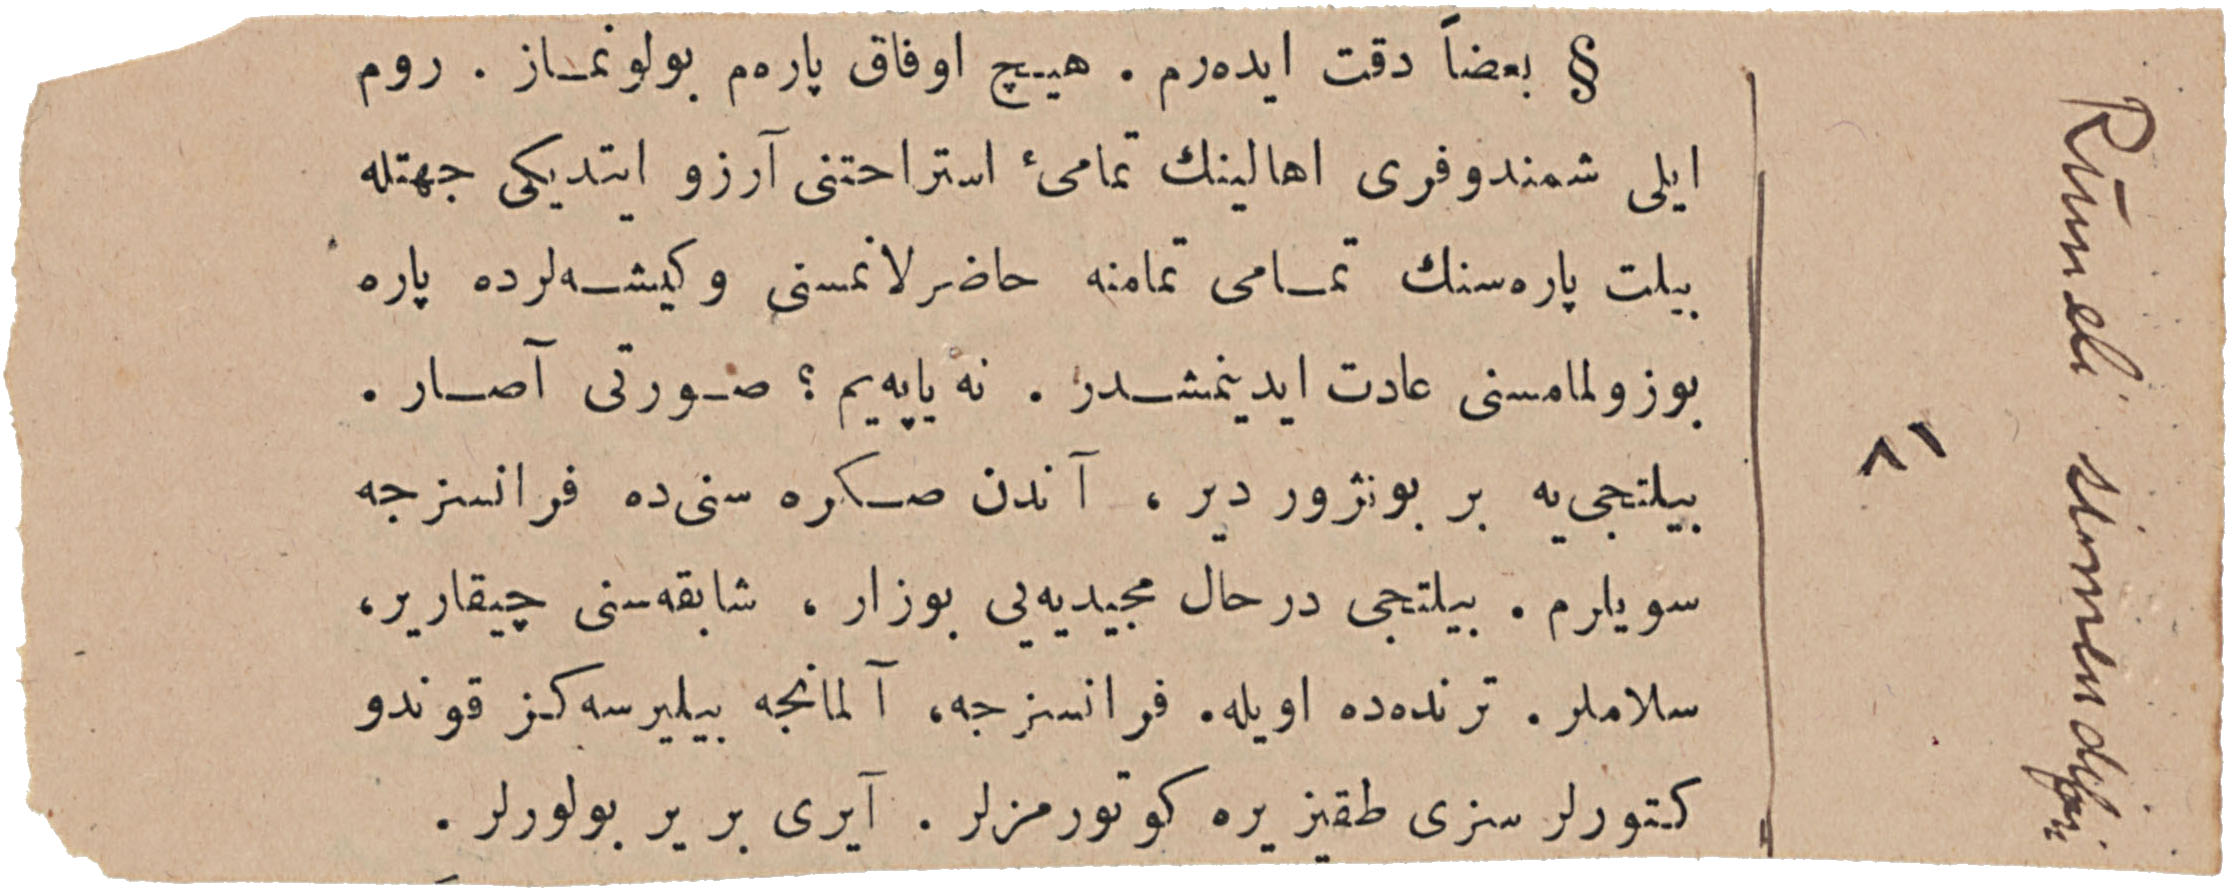 § بعضاً دقت ایده‌رم . هیچ اوفاق پاره‌م بولونماز . روم
ایلی شمندوفری اهالینك تمامیٔ استراحتنی آرزو ایتدیکی جهتله
بیلت پاره‌سنك تمامی تمامنه حاضرلانمسنی وکیشه‌لرده پاره
بوزولمامسنی عادت ایدینمشدر . نه یاپه‌یم ؟ صورتی آصار .
بیلتجی‌یه بر بونژور دیر ، آندن صکره سنی‌ده فرانسزجه
سویلرم . بیلتجی درحال مجیدیه‌یی بوزار ، شابقه‌سنی چیقاریر،
سلاملر . ترنده‌ده اویله. فرانسزجه، آلمانجه بیلیرسه‌کز قوندو
کتورلر سزی طقیز یره کوتورمزلر . آیری بر یر بولورلر .
Rūmeli